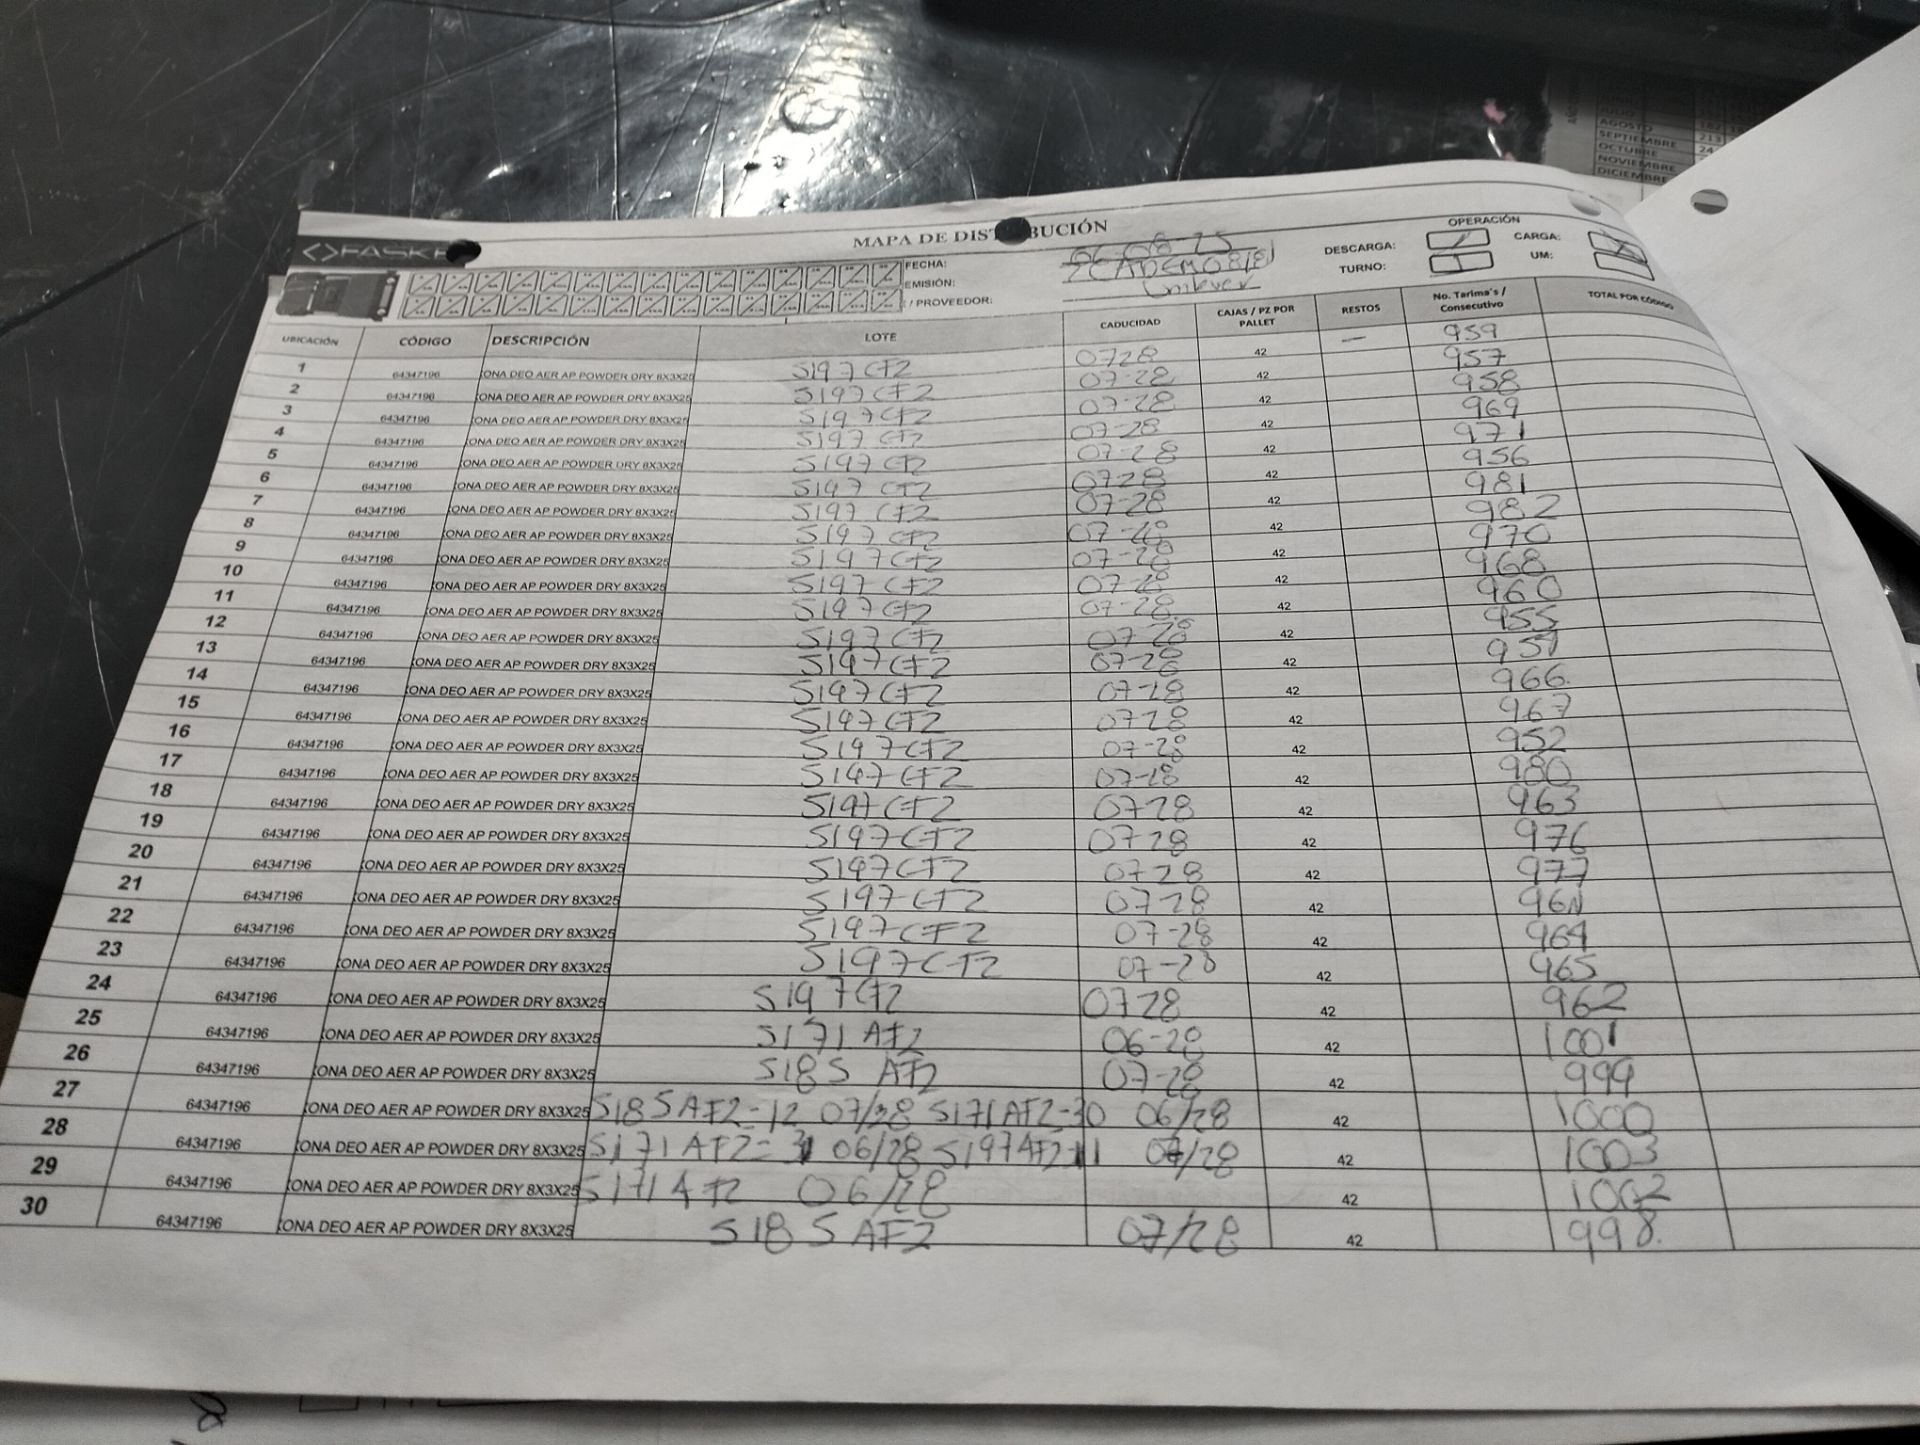 AGOSTO
SEPTIEMBRE 213
OCTUBRE 24
NOVIEMBRE
DICIEMBRE
MAPA DE DIS BUCIÓN
FASKE
OPERACIÓN
FECHA: 06-08-25 DESCARGA: CARGA:
EMISIÓN: TURNO: 1 UM:
/ PROVEEDOR: Unilever
UBICACIÓN CÓDIGO DESCRIPCIÓN LOTE CADUCIDAD CAJAS / PZ POR PALLET RESTOS No. Tarima's / Consecutivo TOTAL POR CÓDIGO
1 64347196 ONA DEO AER AP POWDER DRY 8X3X25 S197CF2 0728 42 — 959
2 64347196 ONA DEO AER AP POWDER DRY 8X3X25 S197CF2 07-28 42 957
3 64347196 ONA DEO AER AP POWDER DRY 8X3X25 S197CF2 07-28 42 958
4 64347196 ONA DEO AER AP POWDER DRY 8X3X25 S197 CF2 07-28 42 969
5 64347196 ONA DEO AER AP POWDER DRY 8X3X25 S197 CF2 07-28 42 971
6 64347196 ONA DEO AER AP POWDER DRY 8X3X25 S197 CF2 0728 42 956
7 64347196 ONA DEO AER AP POWDER DRY 8X3X25 S197 CF2 07-28 42 981
8 64347196 ONA DEO AER AP POWDER DRY 8X3X25 S197 CF2 07-28 42 982
9 64347196 ONA DEO AER AP POWDER DRY 8X3X25 S197CF2 07-28 42 970
10 64347196 ONA DEO AER AP POWDER DRY 8X3X25 S197 CF2 07-28 42 968
11 64347196 ONA DEO AER AP POWDER DRY 8X3X25 S197CF2 07-28 42 960
12 64347196 ONA DEO AER AP POWDER DRY 8X3X25 S197 CF2 07-28 42 955
13 64347196 ONA DEO AER AP POWDER DRY 8X3X25 S197CF2 07-28 42
14 64347196 ONA DEO AER AP POWDER DRY 8X3X25 S197CF2 07-28 42 966
15 64347196 ONA DEO AER AP POWDER DRY 8X3X25 S197CF2 0728 42 967
16 64347196 ONA DEO AER AP POWDER DRY 8X3X25 S197CF2 07-28 42 952
17 64347196 ONA DEO AER AP POWDER DRY 8X3X25 S197CF2 07-28 42 980
18 64347196 ONA DEO AER AP POWDER DRY 8X3X25 S197CF2 0728 42 963
19 64347196 ONA DEO AER AP POWDER DRY 8X3X25 S197CF2 0728 42 976
20 64347196 ONA DEO AER AP POWDER DRY 8X3X25 S197CF2 0728 42 977
21 64347196 ONA DEO AER AP POWDER DRY 8X3X25 S197CF2 07-28 42
22 64347196 ONA DEO AER AP POWDER DRY 8X3X25 S197CF2 07-28 42 964
23 64347196 ONA DEO AER AP POWDER DRY 8X3X25 S197CF2 07-28 42 965
24 64347196 ONA DEO AER AP POWDER DRY 8X3X25 S197CF2 0728 42 962
25 64347196 ONA DEO AER AP POWDER DRY 8X3X25 S171 AF2 06-28 42 1001
26 64347196 ONA DEO AER AP POWDER DRY 8X3X25 S185 AF2 07-28 42 999
27 64347196 ONA DEO AER AP POWDER DRY 8X3X25 S185AF2-12 07/28 S171AF2-30 06/28 42 1000
28 64347196 ONA DEO AER AP POWDER DRY 8X3X25 S171AF2=31 06/28 S197AF2-11 07/28 42 1003
29 64347196 ONA DEO AER AP POWDER DRY 8X3X25 S171AF2 06/28 42 1002
30 64347196 ONA DEO AER AP POWDER DRY 8X3X25 S185AF2 07/28 42 998.